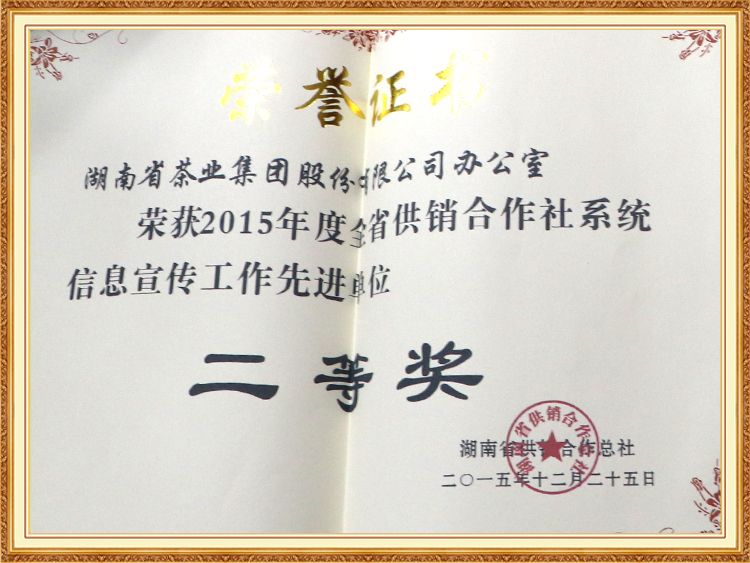 荣誉证书
湖南省茶业集团股份有限公司办公室
荣获2015年度全省供销合作社系统
信息宣传工作先进单位
二等奖
湖南省供销合作总社
二〇一五年十二月二十五日
湖南省供销合作总社